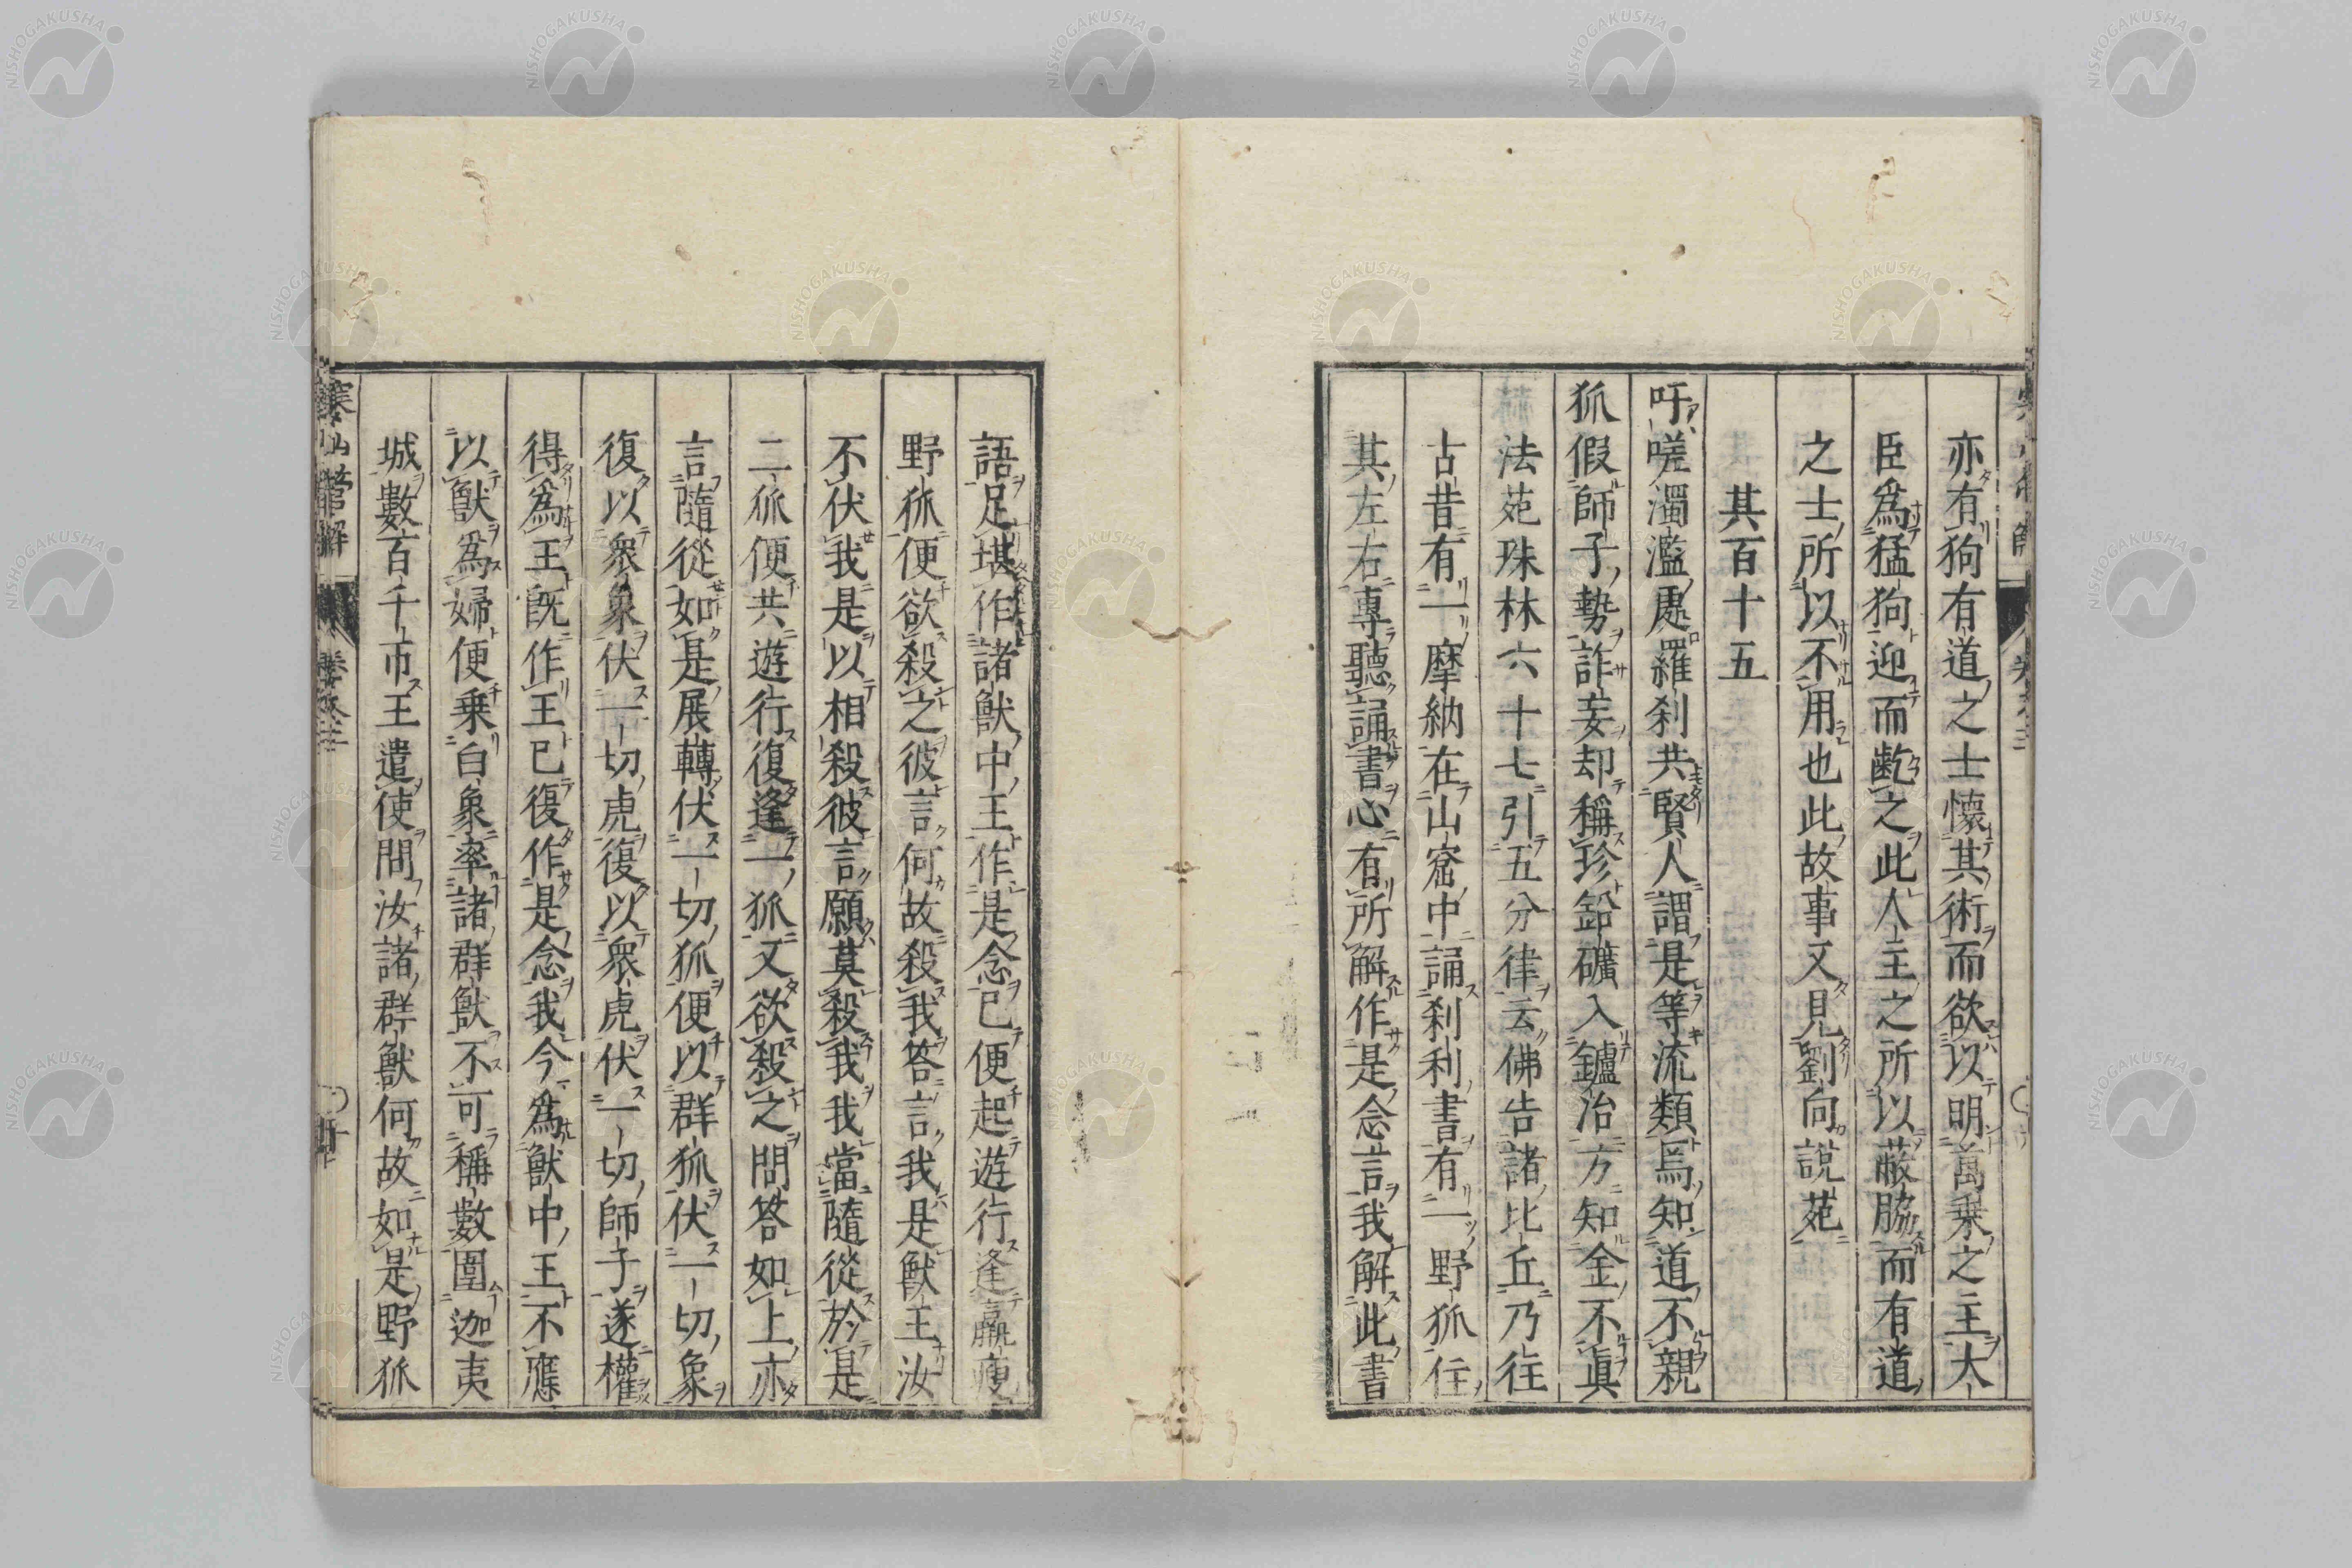 亦有狗有道之士懷其術而欲以明萬乗之主大
臣爲猛狗迎而齕之此人主之所以蔽脇而有道
之士所以不用也此故事又見劉向說苑
其百十五
吁嗟濁濫處羅刹共賢人謂是等流類焉知道不親
狐假師子勢詐妄却稱珍鉛礦入鑪冶方知金不真
法苑珠林六十七引五分律云佛告諸比丘乃往
古昔有一摩納在山窟中誦刹利書有一野狐住
其左右專聽誦書心有所解作是念言我解此書
語足堪作諸獸中王作是念已便起遊行逢羸瘦
野狐便欲殺之彼言何故殺我答言我是獸王汝
不伏我是以相殺彼言願莫殺我我當隨從於是
二狐便共遊行復逢一狐又欲殺之問答如上亦
言隨從如是展轉伏一切狐便以群狐伏一切象
復以衆象伏一切虎復以衆虎伏一切師子遂權
得爲王旣作王已復作是念我今爲獸中王不應
以獸爲婦便乗白象率諸群獸不可稱數圍迦夷
城數百千帀王遣使問汝諸群獸何故如是野狐
寒山詩管解
NISHOGAKUSHA